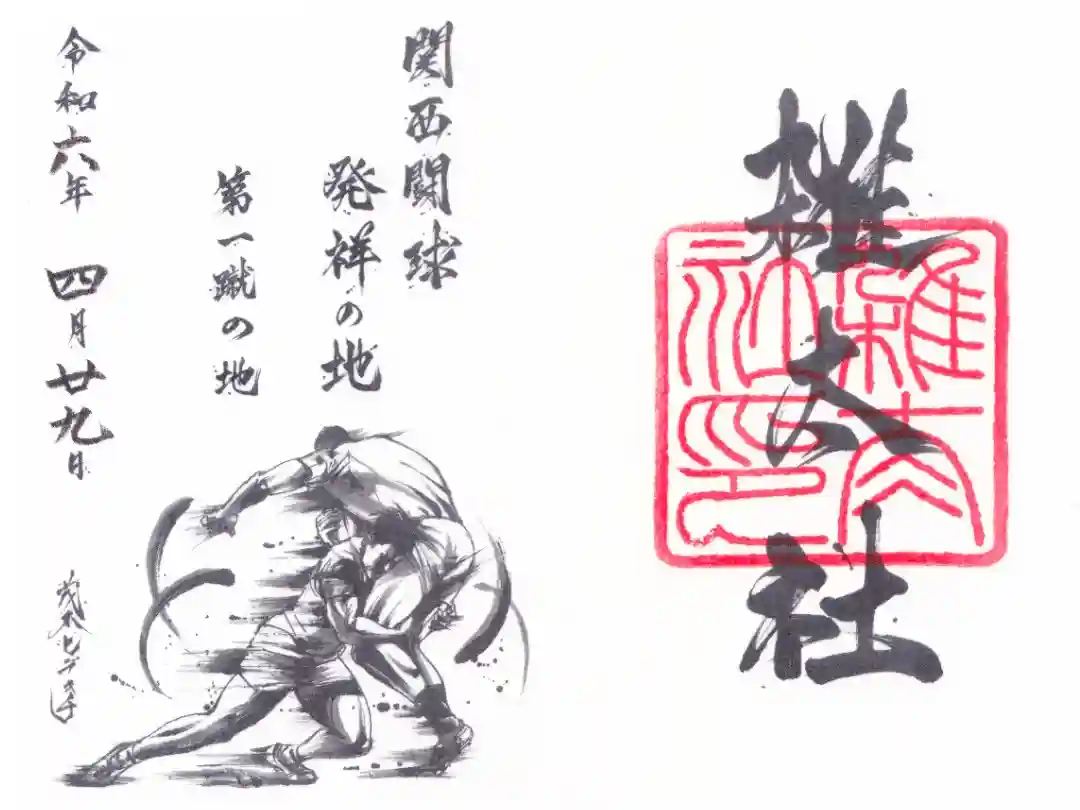 雑太社
雑太社印
関西闘球
発祥の地
第一蹴の地
令和六年 四月廿九日
茂本ヒデキチ